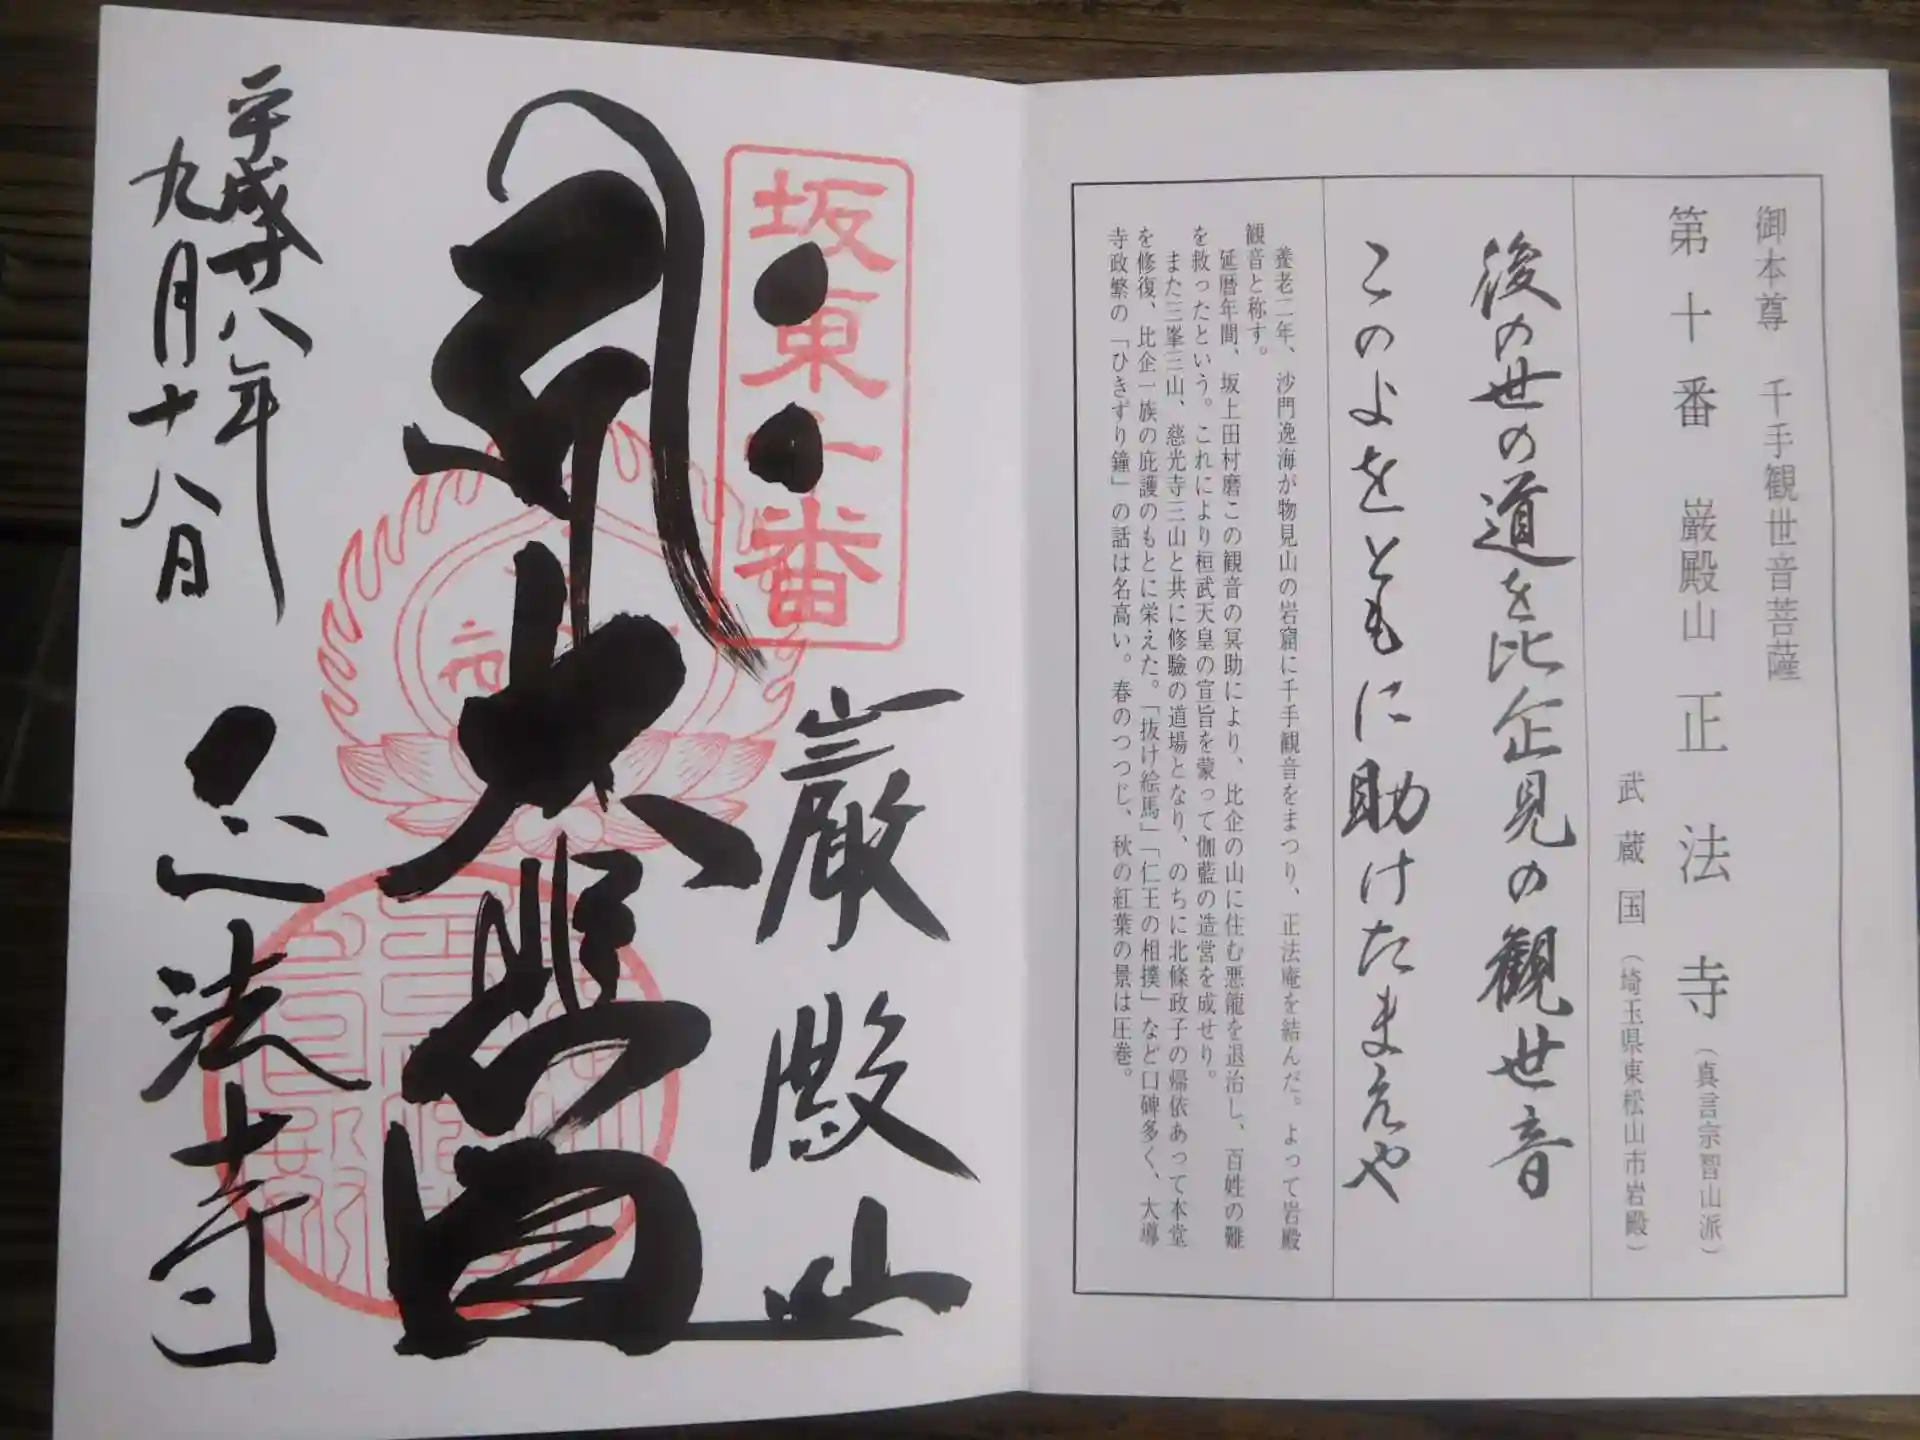 御本尊 千手観世音菩薩
第十番 巌殿山 正法寺（真言宗智山派）
武蔵国（埼玉県東松山市岩殿）
後の世の道を比企見の観世音
このよをともに助けたまえや
養老二年、沙門逸海が物見山の岩窟に千手観音をまつり、正法庵を結んだ。よって岩殿
観音と称す。
延暦年間、坂上田村磨この観音の冥助により、比企の山に住む悪龍を退治し、百姓の難
を救ったという。これにより桓武天皇の宣旨を蒙って伽藍の造営を成せり。
また三峯三山、慈光寺三山と共に修験の道場となり、のちに北條政子の帰依あって本堂
を修復、比企一族の庇護のもとに栄えた。「抜け絵馬」「仁王の相撲」など口碑多く、大導
寺政繁の「ひきずり鐘」の話は名高い。春のつつじ、秋の紅葉の景は圧巻。
坂東十番
巌殿山
大悲
平成廿八年
九月十八日
正法寺